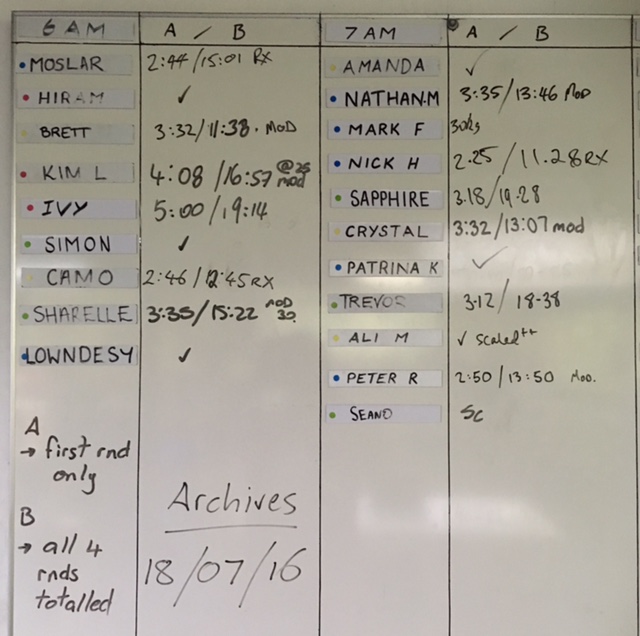 6 AM A / B
MOSLAR 2:44/15:01 RX
HIRAM ✓
BRETT 3:32/11:38. MOD
KIM L 4:08/16:57 @25 mod
IVY 5:00/19:14
SIMON ✓
CAMO 2:46/12:45 RX
SHARELLE 3:35/15:22 MOD 30
LOWNDESY ✓
A
→ first rnd
only
B
→ all 4
rnds
totalled
Archives
18/07/16
7 AM A / B
AMANDA ✓
NATHAN.M 3:35/13:46 MOD
MARK F
NICK H 2.25/11.28 RX
SAPPHIRE 3.18/19.28
CRYSTAL 3:32/13:07 mod
PATRINA K ✓
TREVOR 3.12/18.38
ALI M ✓ scaled++
PETER R 2:50/13:50 MOD.
SEANO SC